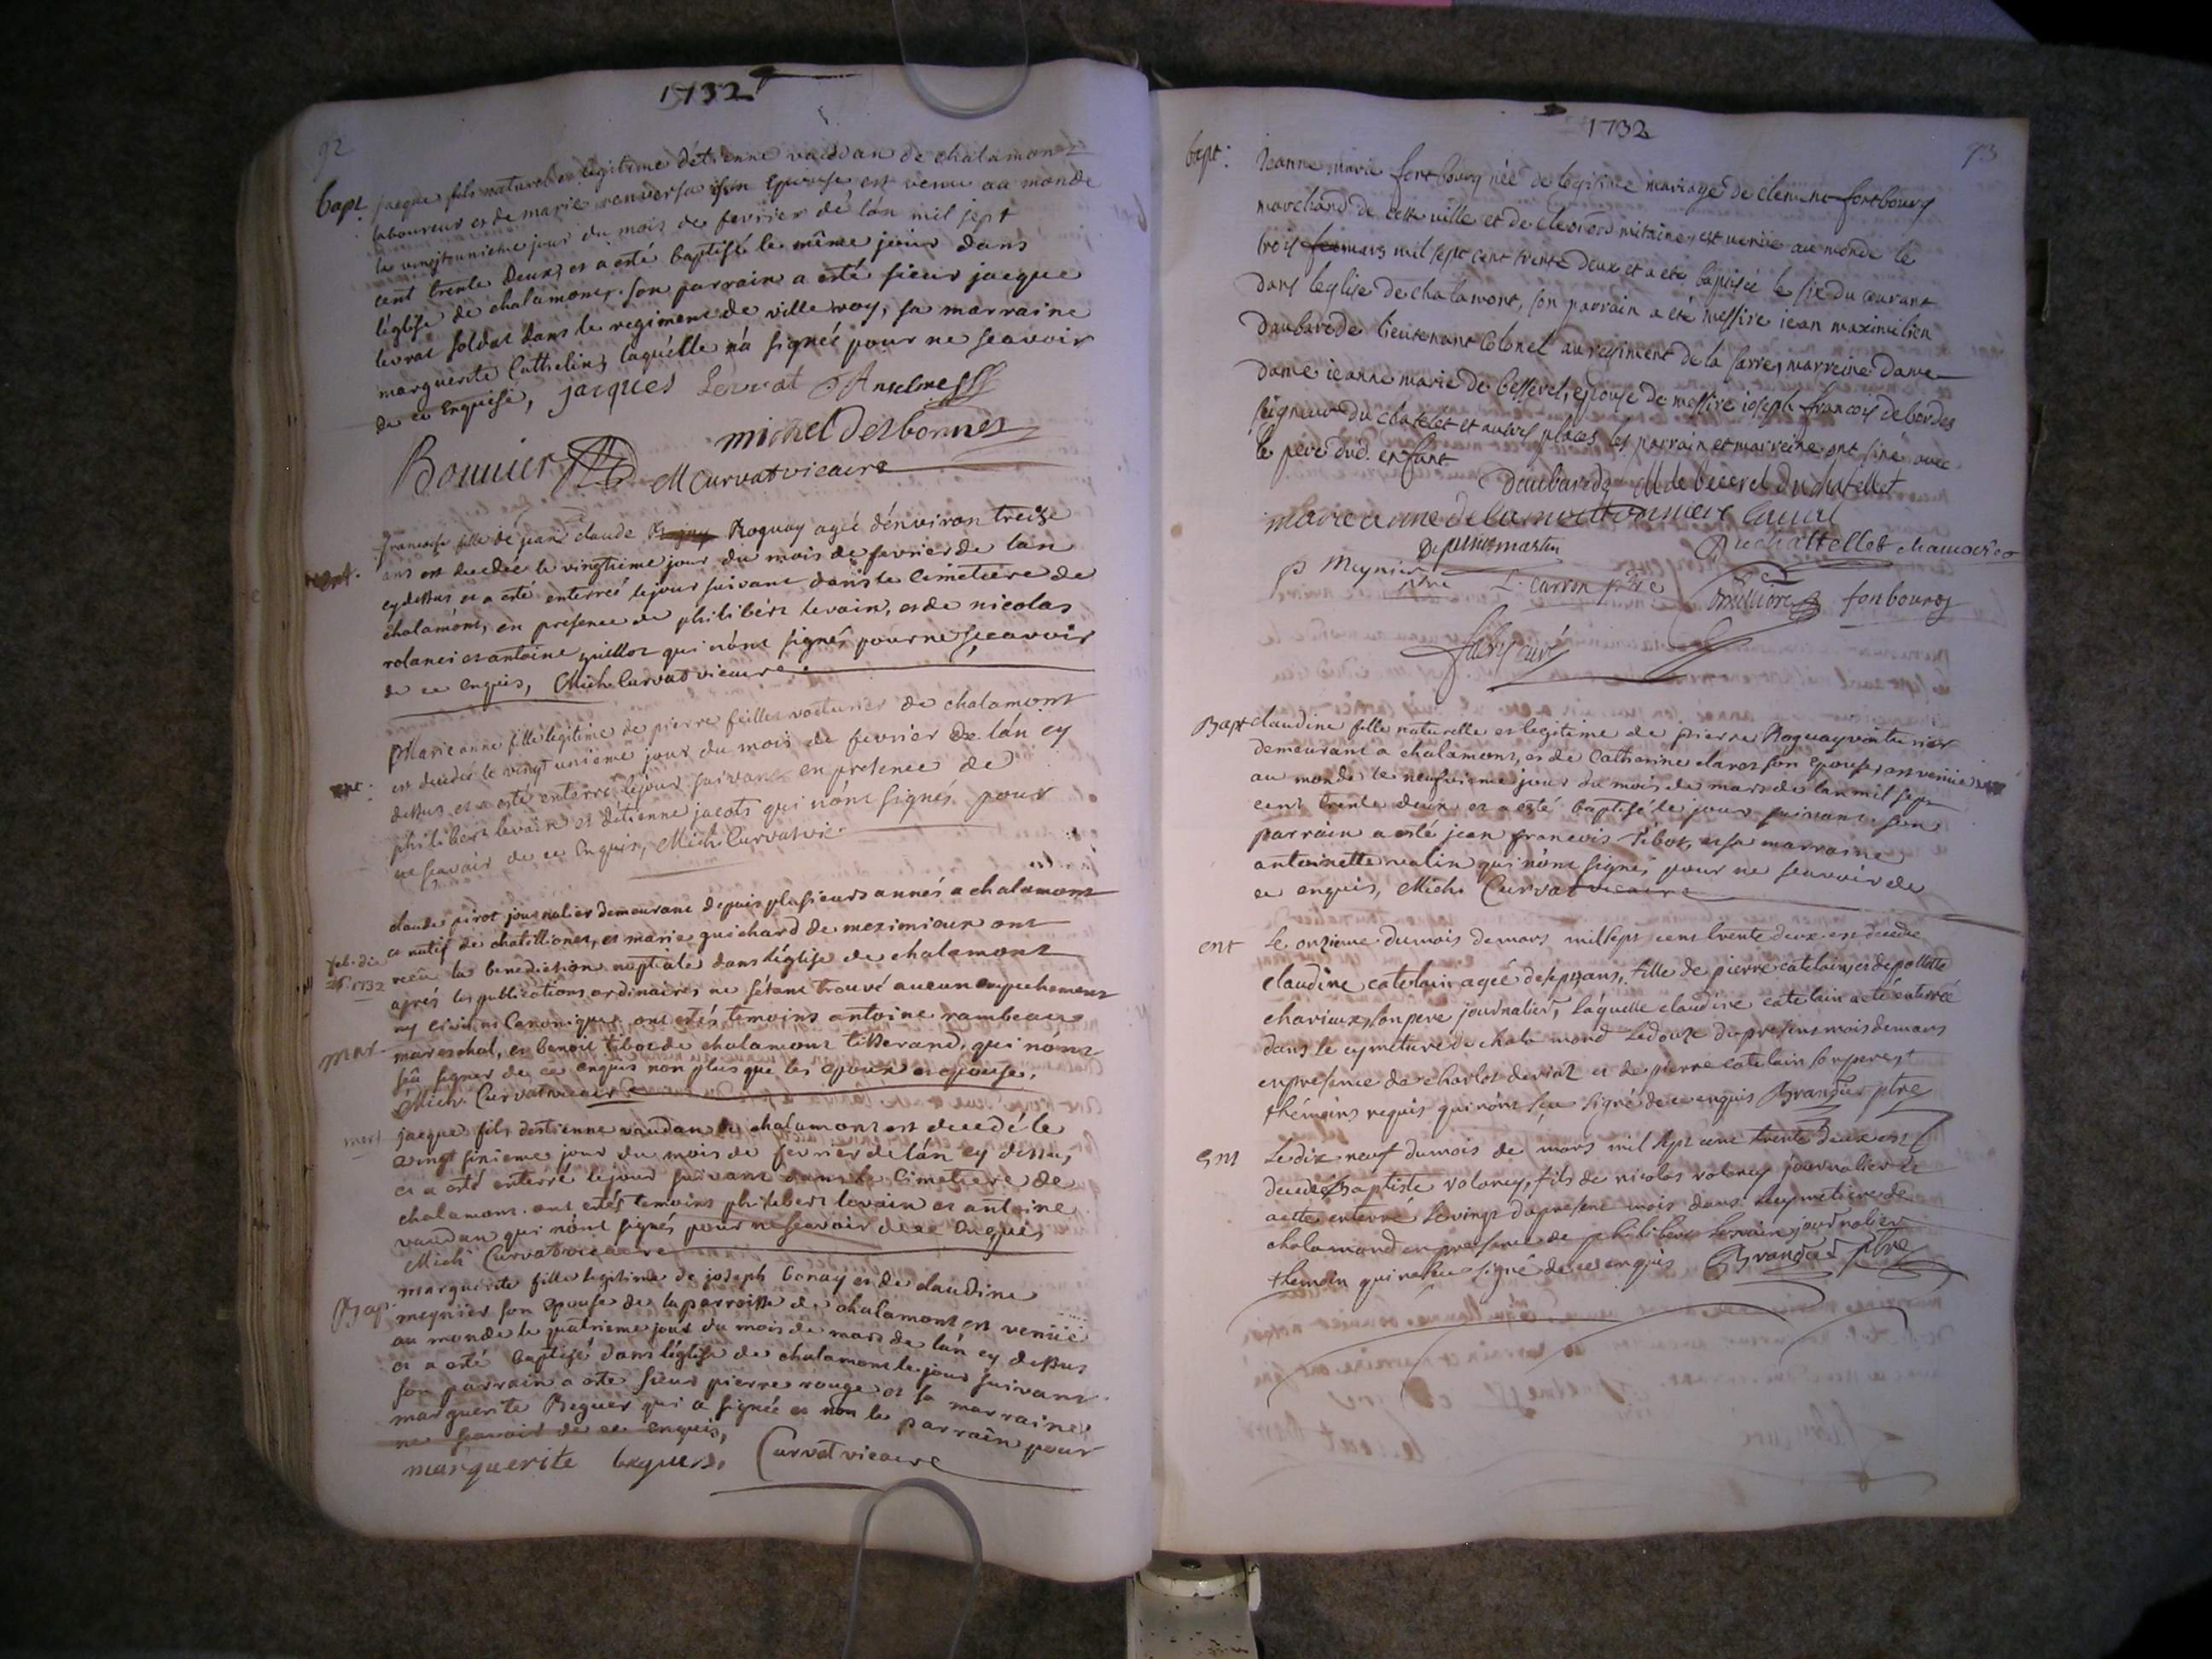 1732
92
bapt. jacque fils naturel et legitime d'etienne vaudan de chalamont
laboureur et de marie renversa son Epouse, est venu au monde
le vingtunieme jour du mois de fevrier de l'an mil sept
cent trente deux, et a esté baptisé le même jour dans
l'église de chalamont. son parrain a esté sieur jacque
levrat soldat dans le regiment de villeroy, sa marraine
marguerite Cathelin, laquelle n'a signée pour ne scavoir
de ce Enquise, jacques Levrat Anselme
michel desbonnes
Bonnier M Curvat vicaire
francoise fille de jean claude Roguay agée d'environ treize
ans est decedée le vingtieme jour du mois de fevrier de l'an
cy dessus et a esté enterrée le jour suivant dans le Cimetiere de
chalamont, en presence de philibert levain, et de nicolas
rolanci et antoine guillot qui n'ont signés pour ne scavoir
de ce enquis, Mich Curvat vicaire.
Marie anne fille legitime de pierre feillet voiturier de chalamont
ept. est decedée le vingt unieme jour du mois de fevrier de l'an cy
dessus et a esté enterré le jour suivant en presence de
philibert levain et d'etienne jacots qui n'ont signés pour
ne scavoir de ce Enquis, Mich Curvat vic.
claude pirot journalier demeurant depuis plusieurs années a chalamont
et natif de chatillionet, et marie guichard de meximieux ont
feb. die
26 1732
receu la benediction nuptiale dans l'église de chalamont
aprés les publications ordinaires ne s'étant trouvé aucun empechement
ny civil ni Canonique ont estés temoins antoine rambeau
mar mareschal, et benoit tibot de chalamont tisserand, qui n'ont
sçû signer de ce enquis non plus que les epoux et epouse.
Mich. Curvat vicaire
mort jacque fils d'estienne vaudan de chalamont est decedé le
vingt sixieme jour du mois de fevrier de l'an cy dessus,
et a esté enterré le jour suivant dans le Cimetiere de
chalamont. ont estés temoins philibert levain et antoine
vaudan qui n'ont signés pour ne scavoir de ce Enquis
Mich Curvat vicaire
marguerite fille legitime de joseph bonay et de claudine
Bap. meynier son epouse de la parroisse de chalamont est venüe
au monde le quatrieme jour du mois de mars de l'an cy dessus
et a esté baptisé dans l'église de chalamont le jour suivant.
son parrain a esté sieur pierre rouge et sa marraine
marguerite Beguer qui a signée et non le parrain pour
ne scavoir de ce enquis,
marguerite beguer. Curvat vicaire
1732
93
bapt: Jeanne marie fortbourg née de legitime mariage de clement fortbourg
marchand de cette ville et de mitaine, est venüe au monde le
trois mars mil sept cent trente deux et a eté baptisée le six du courant
dans leglise de chalamont, son parrain a eté messire jean maximilien
daubarede lieutenant Colonel au regiment de la sarre, marreine dame
dame jeanne marie de besserel, epouse de messire joseph francois de bordes
seigneur du chatelet et autres places, les parrain et marreine ont siné avec
le pere dud. enfant.
Daubarede M de becerel du chatellet
marie anne de
martin Duchattellet chamarier
p Meynier ptre L. carron ptre fonbourg
curé
Bapt claudine fille naturelle et legitime de pierre Roguay voiturier
demeurant a chalamont, et de Catherine claret son Epouse, est venüe
au monde le neufvieme jour du mois de mars de l'an mil sept
cent trente deux et a esté baptisé le jour suivant. son
parrain a esté jean francois tibot, et sa marraine
antoinette qui n'ont signés pour ne scavoir de
ce enquis, Mich Curvat vicaire
ent Le onzieme du mois de mars mil sept cent trente deux est decedée
claudine catelain agée de sept ans, fille de pierre catelain et de pollette
charieux, son pere journalier, laquelle claudine catelain a eté enterrée
dans le cymetiere de chalamond Le douze du present mois de mars
en presence de charlot et de pierre catelain son pere,
themoins requis qui n'ont sçu signé de ce enquis Brandu ptre
Ent Le dix neuf du mois de mars mil sept cent trente deux est
decedé baptiste volancy, fils de nicolas volancy journalier et
a etté enterré le vingt du present mois dans le cymetiere de
chalamond en presence de philibert levain, journalier
themoin qui n'a sçu signé de ce enquis Brandu ptre